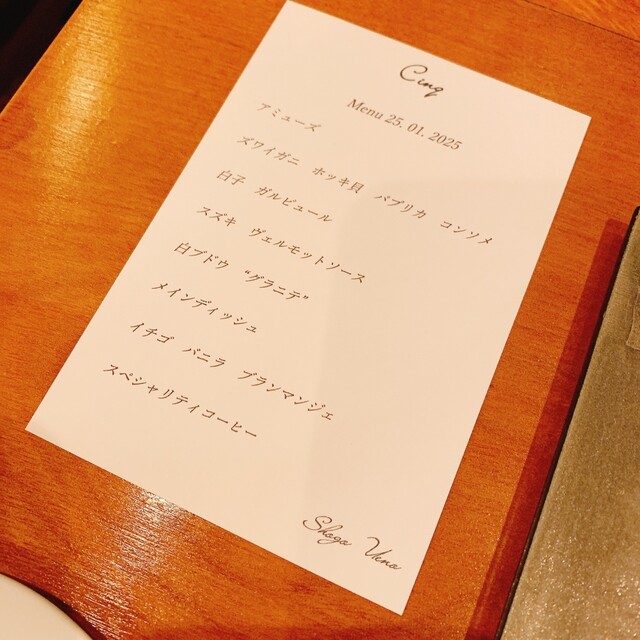 Cinq
Menu 25. 01. 2025
アミューズ
ズワイガニ ホッキ貝 パプリカ コンソメ
白子 ガルビュール
スズキ ヴェルモットソース
白ブドウ “グラニテ”
メインディッシュ
イチゴ バニラ ブランマンジェ
スペシャリティコーヒー
Shogo Ueno